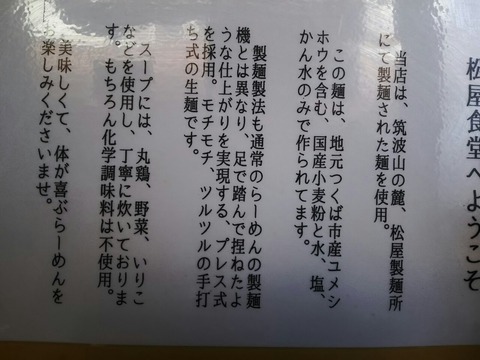 松屋食堂へようこそ
当店は、筑波山の麓、松屋製麺所
にて製麺された麺を使用。
この麺は、地元つくば市産ユメシ
ホウを含む、国産小麦粉と水、塩、
かん水のみで作られてます。
製麺製法も通常のらーめんの製麺
機とは異なり、足で踏んで捏ねたよ
うな仕上がりを実現する、プレス式
を採用。モチモチ、ツルツルの手打
ち式の生麺です。
スープには、丸鶏、野菜、いりこ
などを使用し、丁寧に炊いておりま
す。もちろん化学調味料は不使用。
美味しくて、体が喜ぶらーめんを
お楽しみくださいませ。